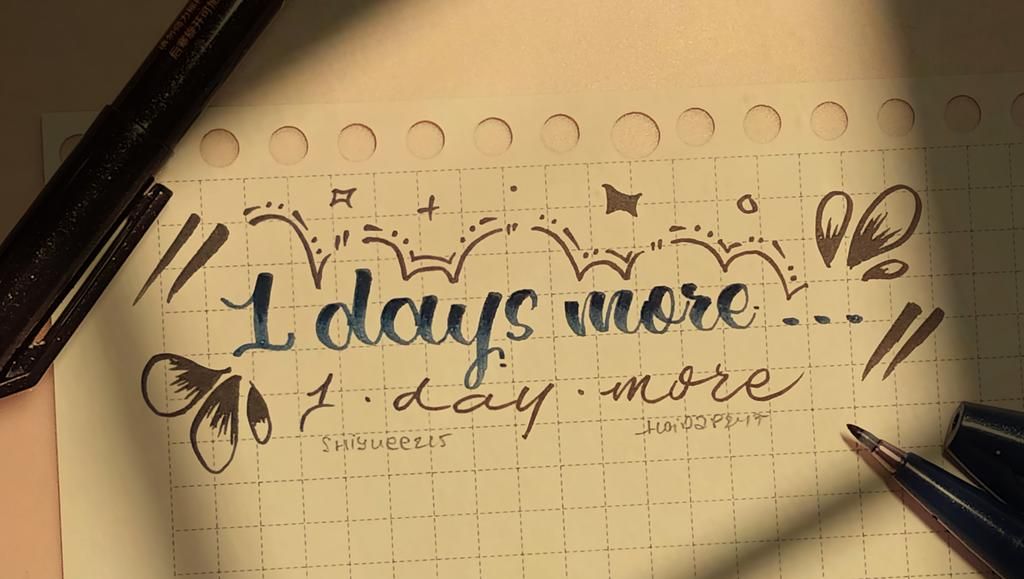 1 days more...
1 · day · more
SHIYUEEZ15